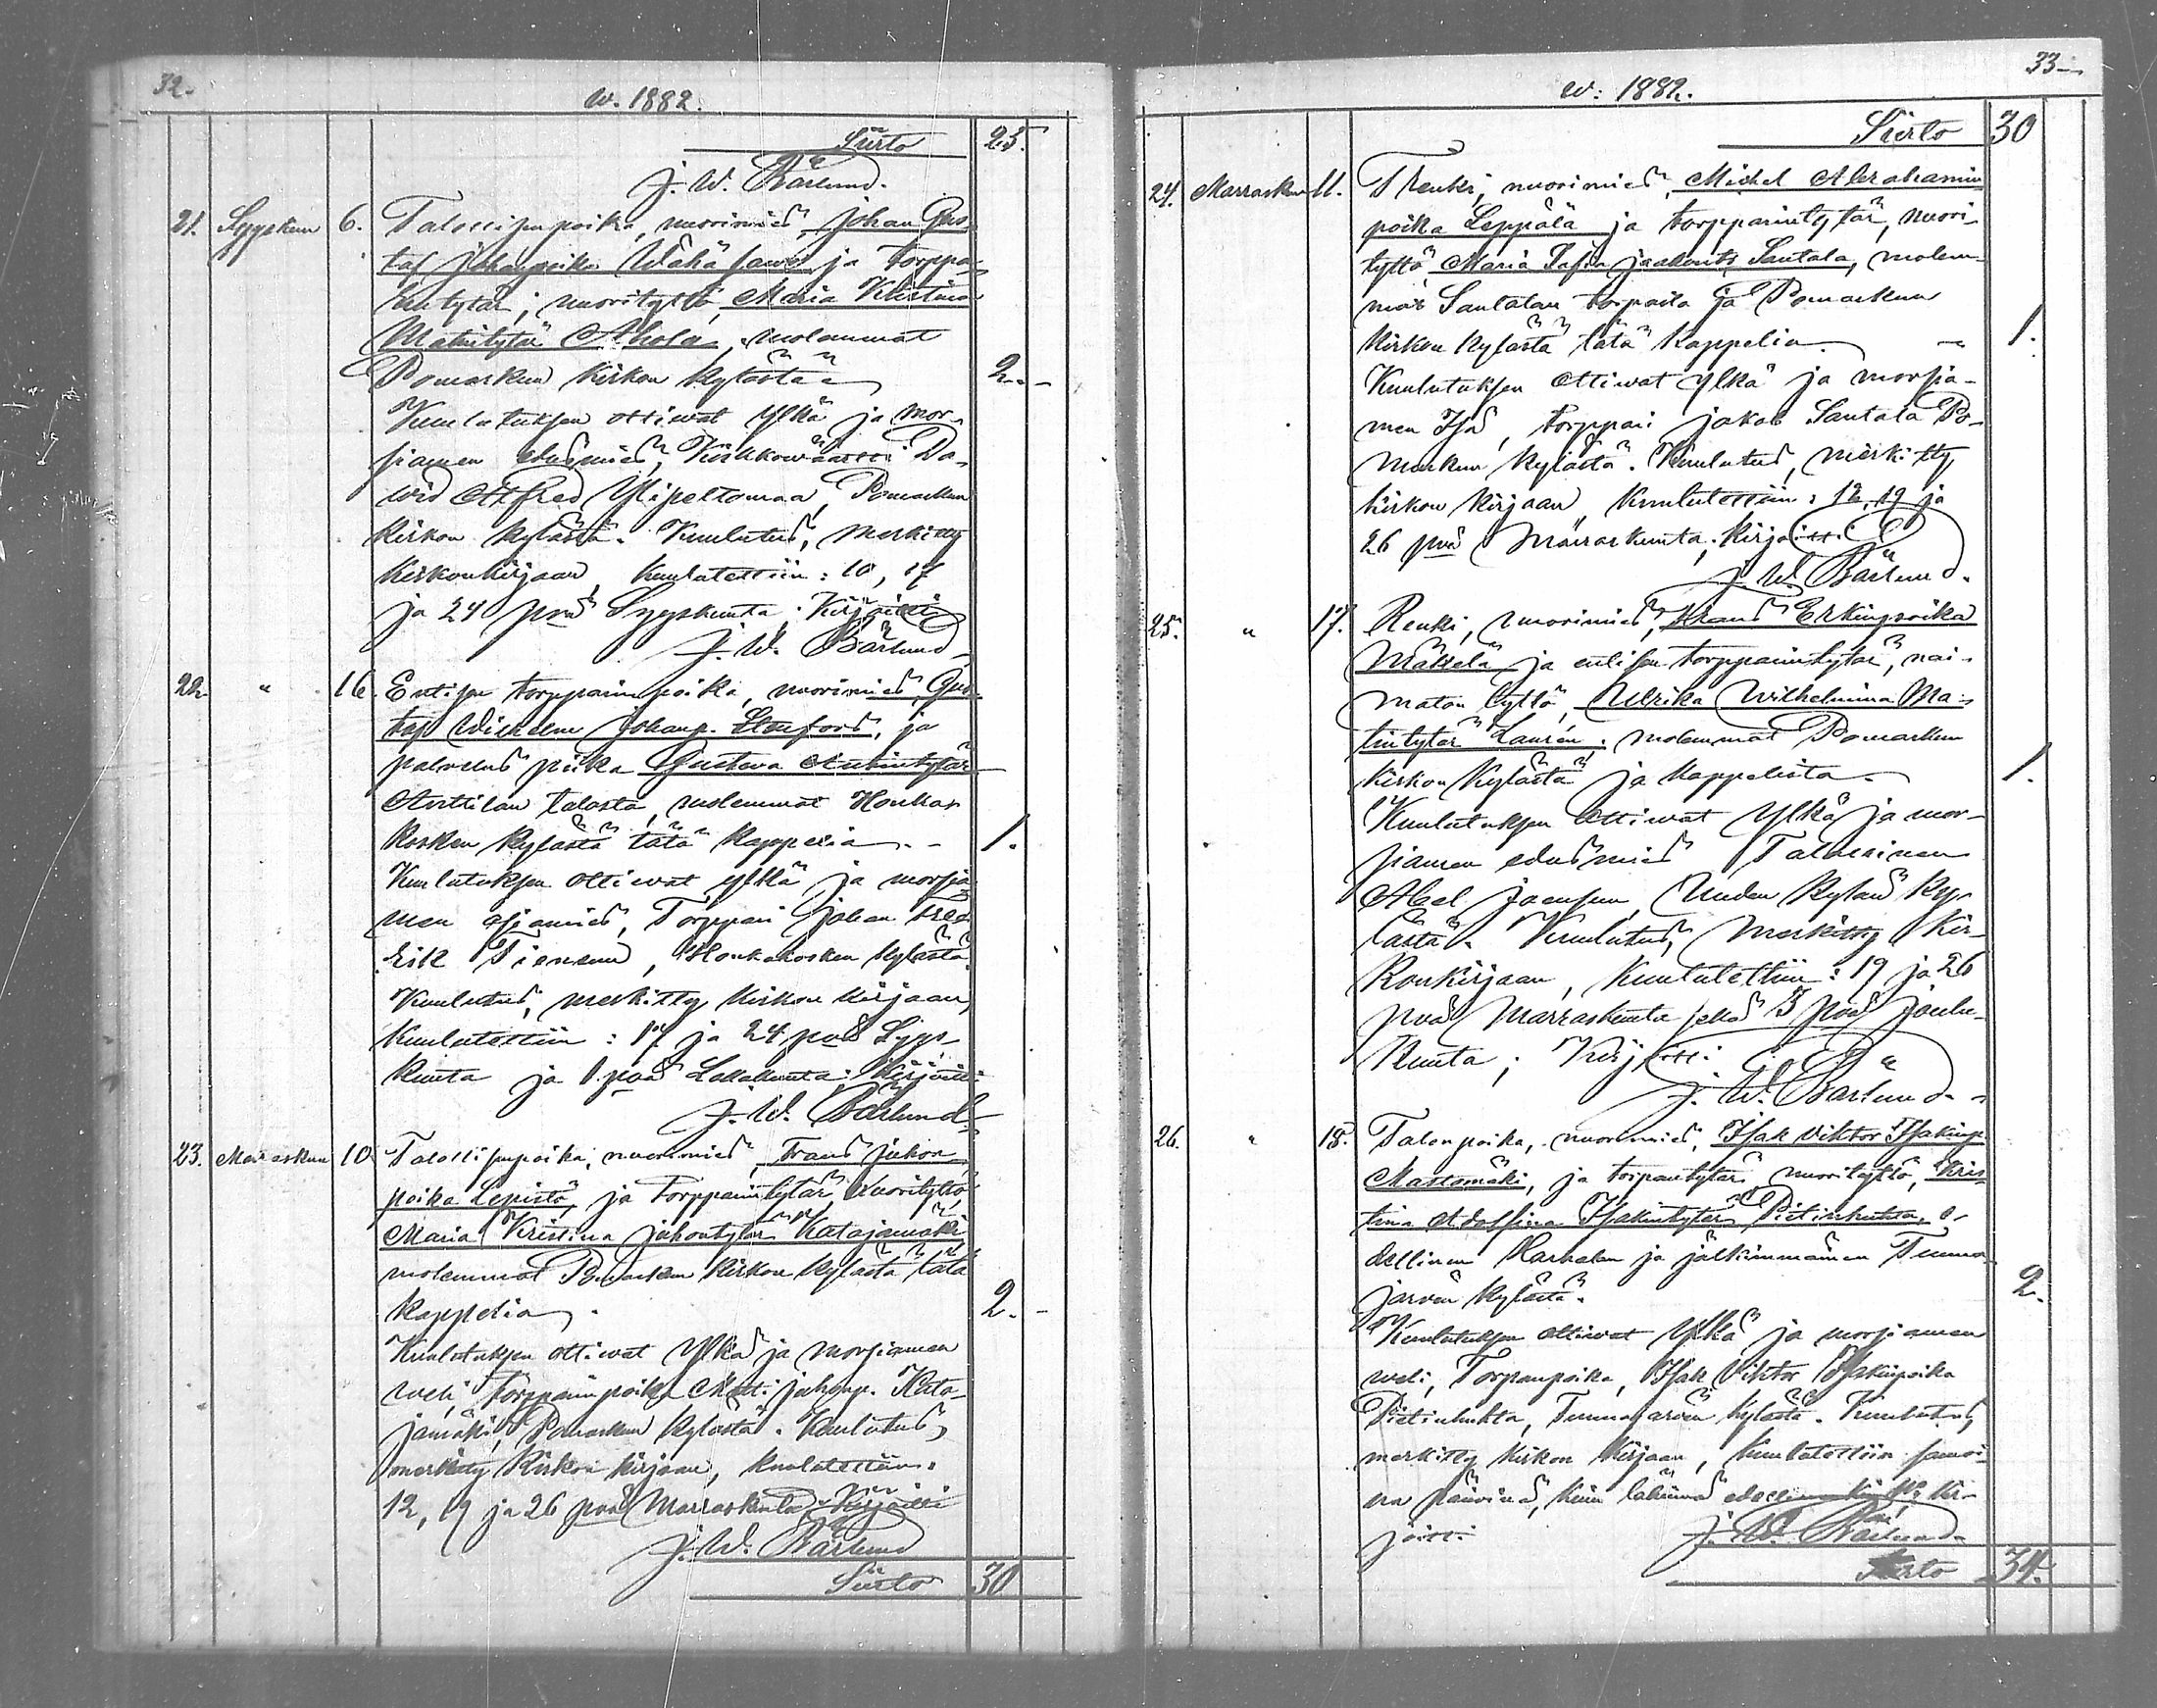 32.
w. 1882.
Siirto 25.
J. W. Bärlund.
21. Syyskuu 6. Talollisenpoika, nuorimies, Johan Gus-
taf Juhanpoika Wähä
ja torppa-
rintytär, nuorityttö, Maria Kristina
Matintytär Ahola, molemmat
Pomarkun kirkon kylästä. 2. -
Kuulutuksen ottiwat ylkä ja mor-
siamen edusmies, Kirkkowäärti Da-
wid Alfred Ylipeltomaa, Pomarkun
kirkon kylästä. Kuulutus, merkitty
kirkonkirjaan, kuulutettiin: 10, 17
ja 24 pnä Syyskuuta; Kirjoitti
J. W. Bärlund
22. " 16. Entisen torpparinpoika, nuorimies, Gus-
taf Wilhelm Johanp.
, ja
palvelus piika Gustava
Anttilan talosta, molemmat Honka-
kosken kylästä tätä kappelia. - 1.
Kuulutuksen ottiwat ylkä ja morsia-
men asiamies, Torppari Johan Fred-
rik
, Honkakosken kylästä.
Kuulutus, merkitty kirkon kirjaan,
kuulutettiin: 17 ja 24 pnä Syys-
kuuta ja 1 pnä Lokakuuta; Kirjoitti
J. W. Bärlund
23. Marraskuu 10. Talollisenpoika, nuorimies, Frans Juhon
poika Lepistö, ja torpparintytär, nuorityttö
Maria Kristina Juhontytär Katajamäki
molemmat Pomarkun kirkon kylästä tätä
kappelia. 2. -
Kuulutuksen ottiwat ylkä ja morsiamen
weli, torpparinpoika Matti Juhonp. Kata-
jamäki, Pomarkun kylästä. Kuulutus,
merkitty kirkon kirjaan, kuulutettiin:
12, 19 ja 26 pnä Marraskuuta; Kirjoitti
J. W. Bärlund
Siirto 30
33
w: 1882.
Siirto 30
24. Marraskuu 11. Renki, nuorimies, Michel Abrahamin
poika Leppälä ja torpparintytär, nuori-
tyttö, Maria Sofia Jaakonts Santala, molem-
mat Santalan torpasta ja Pomarkun
kirkon kylästä tätä kappelia. - 1.
Kuulutuksen ottiwat ylkä ja morsia-
men Isä, torppari Jakob Santala Po-
markun kylästä. Kuulutus, merkitty
kirkon kirjaan, kuulutettiin: 12, 19 ja
26 pnä Marraskuuta; Kirjoitti
J. W. Bärlund.
25. " 17. Renki, nuorimies, Frans Erkinpoika
Mäkelä ja entisen torpparintytär, nai-
maton tyttö, Ulrika Wilhelmina Ma-
tintytär Laurén; molemmat Pomarkun
kirkon kylästä ja kappelista. 1.
Kuulutuksen ottiwat ylkä ja mor-
siamen edusmies Talollinen
Abel
, Uuden kylän ky-
lästä. Kuulutus, merkitty kir-
konkirjaan, kuulutettiin: 19 ja 26
pnä Marraskuuta sekä 3 pnä Joulu-
kuuta; Kirjoitti
J. W. Bärlund.
26. " 18. Talonpoika, nuorimies, Isak Viktor Isakinp.
Mastomäki, ja torpantytär, nuorityttö, Kris-
tina Adolfina Isakintytär Pietinhuhta, e-
dellinen Harhalan ja jälkimmäinen Tunna-
järven kylästä. 2.
Kuulutuksen ottiwat ylkä ja morsiamen
weli, Torpanpoika, Isak Viktor Isakinpoika
Pietinhuhta, Tunnajärven kylästä. Kuulutus,
merkitty kirkon kirjaan, kuulutettiin samoi-
na päivinä, kuin lähinnä
kir-
joitti J. W. Bärlund.
Siirto 34.